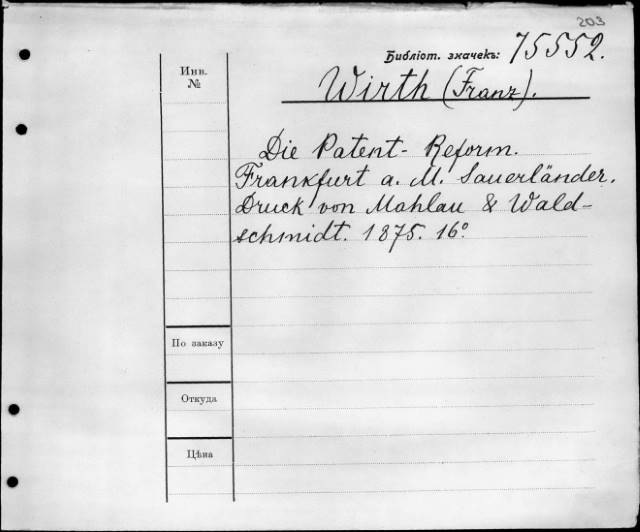 203
Библіот. значекъ: 75552.
Инв.
№
Wirth (Franz).
Die Patent-Reform.
Frankfurt a. M. Sauerländer.
Druck von Mahlau & Wald-
schmidt. 1875. 16°
По заказу
Откуда
Цѣна